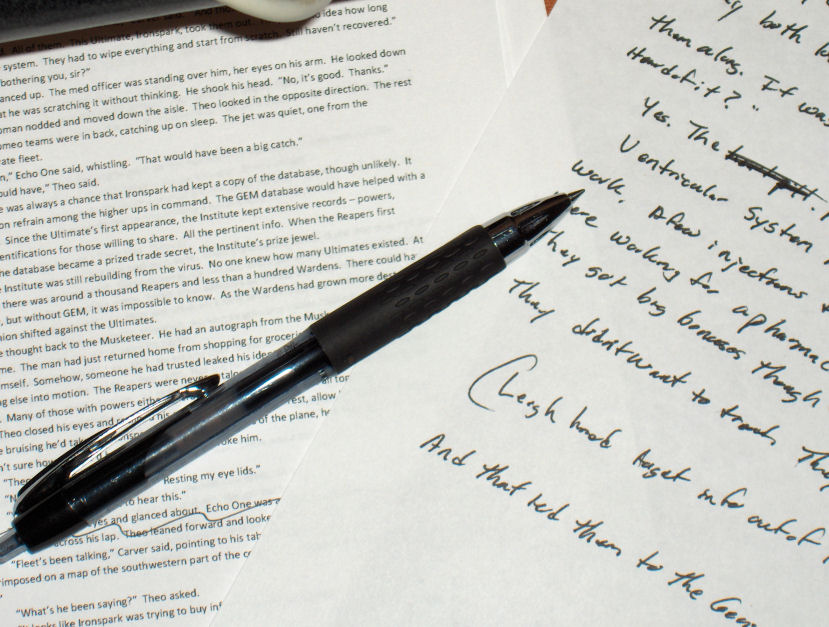 idea how long
All of them. This Ultimate, Ironspark, took them out.
system. They had to wipe everything and start from scratch. Still haven't recovered."
bothering you, sir?"
anced up. The med officer was standing over him, her eyes on his arm. He looked down
at he was scratching it without thinking. He shook his head. "No, it's good. Thanks."
oman nodded and moved down the aisle. Theo looked in the opposite direction. The rest
omeo teams were in back, catching up on sleep. The jet was quiet, one from the
ate fleet.
n," Echo One said, whistling. "That would have been a big catch."
ould have," Theo said.
e was always a chance that Ironspark had kept a copy of the database, though unlikely. It
on refrain among the higher ups in command. The GEM database would have helped with a
. Since the Ultimate's first appearance, the Institute kept extensive records – powers,
entifications for those willing to share. All the pertinent info. When the Reapers first
he database became a prized trade secret, the Institute's prize jewel.
e Institute was still rebuilding from the virus. No one knew how many Ultimates existed. At
there was around a thousand Reapers and less than a hundred Wardens. There could ha
, but without GEM, it was impossible to know. As the Wardens had grown more des
nion shifted against the Ultimates.
e thought back to the Musketeer. He had an autograph from the Musk
me. The man had just returned home from shopping for groceri
mself. Somehow, someone he had trusted leaked his ide
ng else into motion. The Reapers were never
. Many of those with powers eith
rest, allow
Theo closed his eyes and
his
of the plane, he
e bruising he'd ta
oke him.
n't sure how
"Theo
Resting my eye lids."
to hear this."
yes and glanced about. Echo One was a
across his lap. Theo leaned forward and looke
"Fleet's been talking," Carver said, pointing to his tab
rimposed on a map of the southwestern part of the co
"What's he been saying?" Theo asked.
looks like Ironspark was trying to buy inf
both
them along. It was
How do f it?"
Yes. The
Ventricular System
work. A few injections
ere working for a pharmac
they got big bonuses though
they didn't want to
(Leigh had to get info out of
And that led them to the